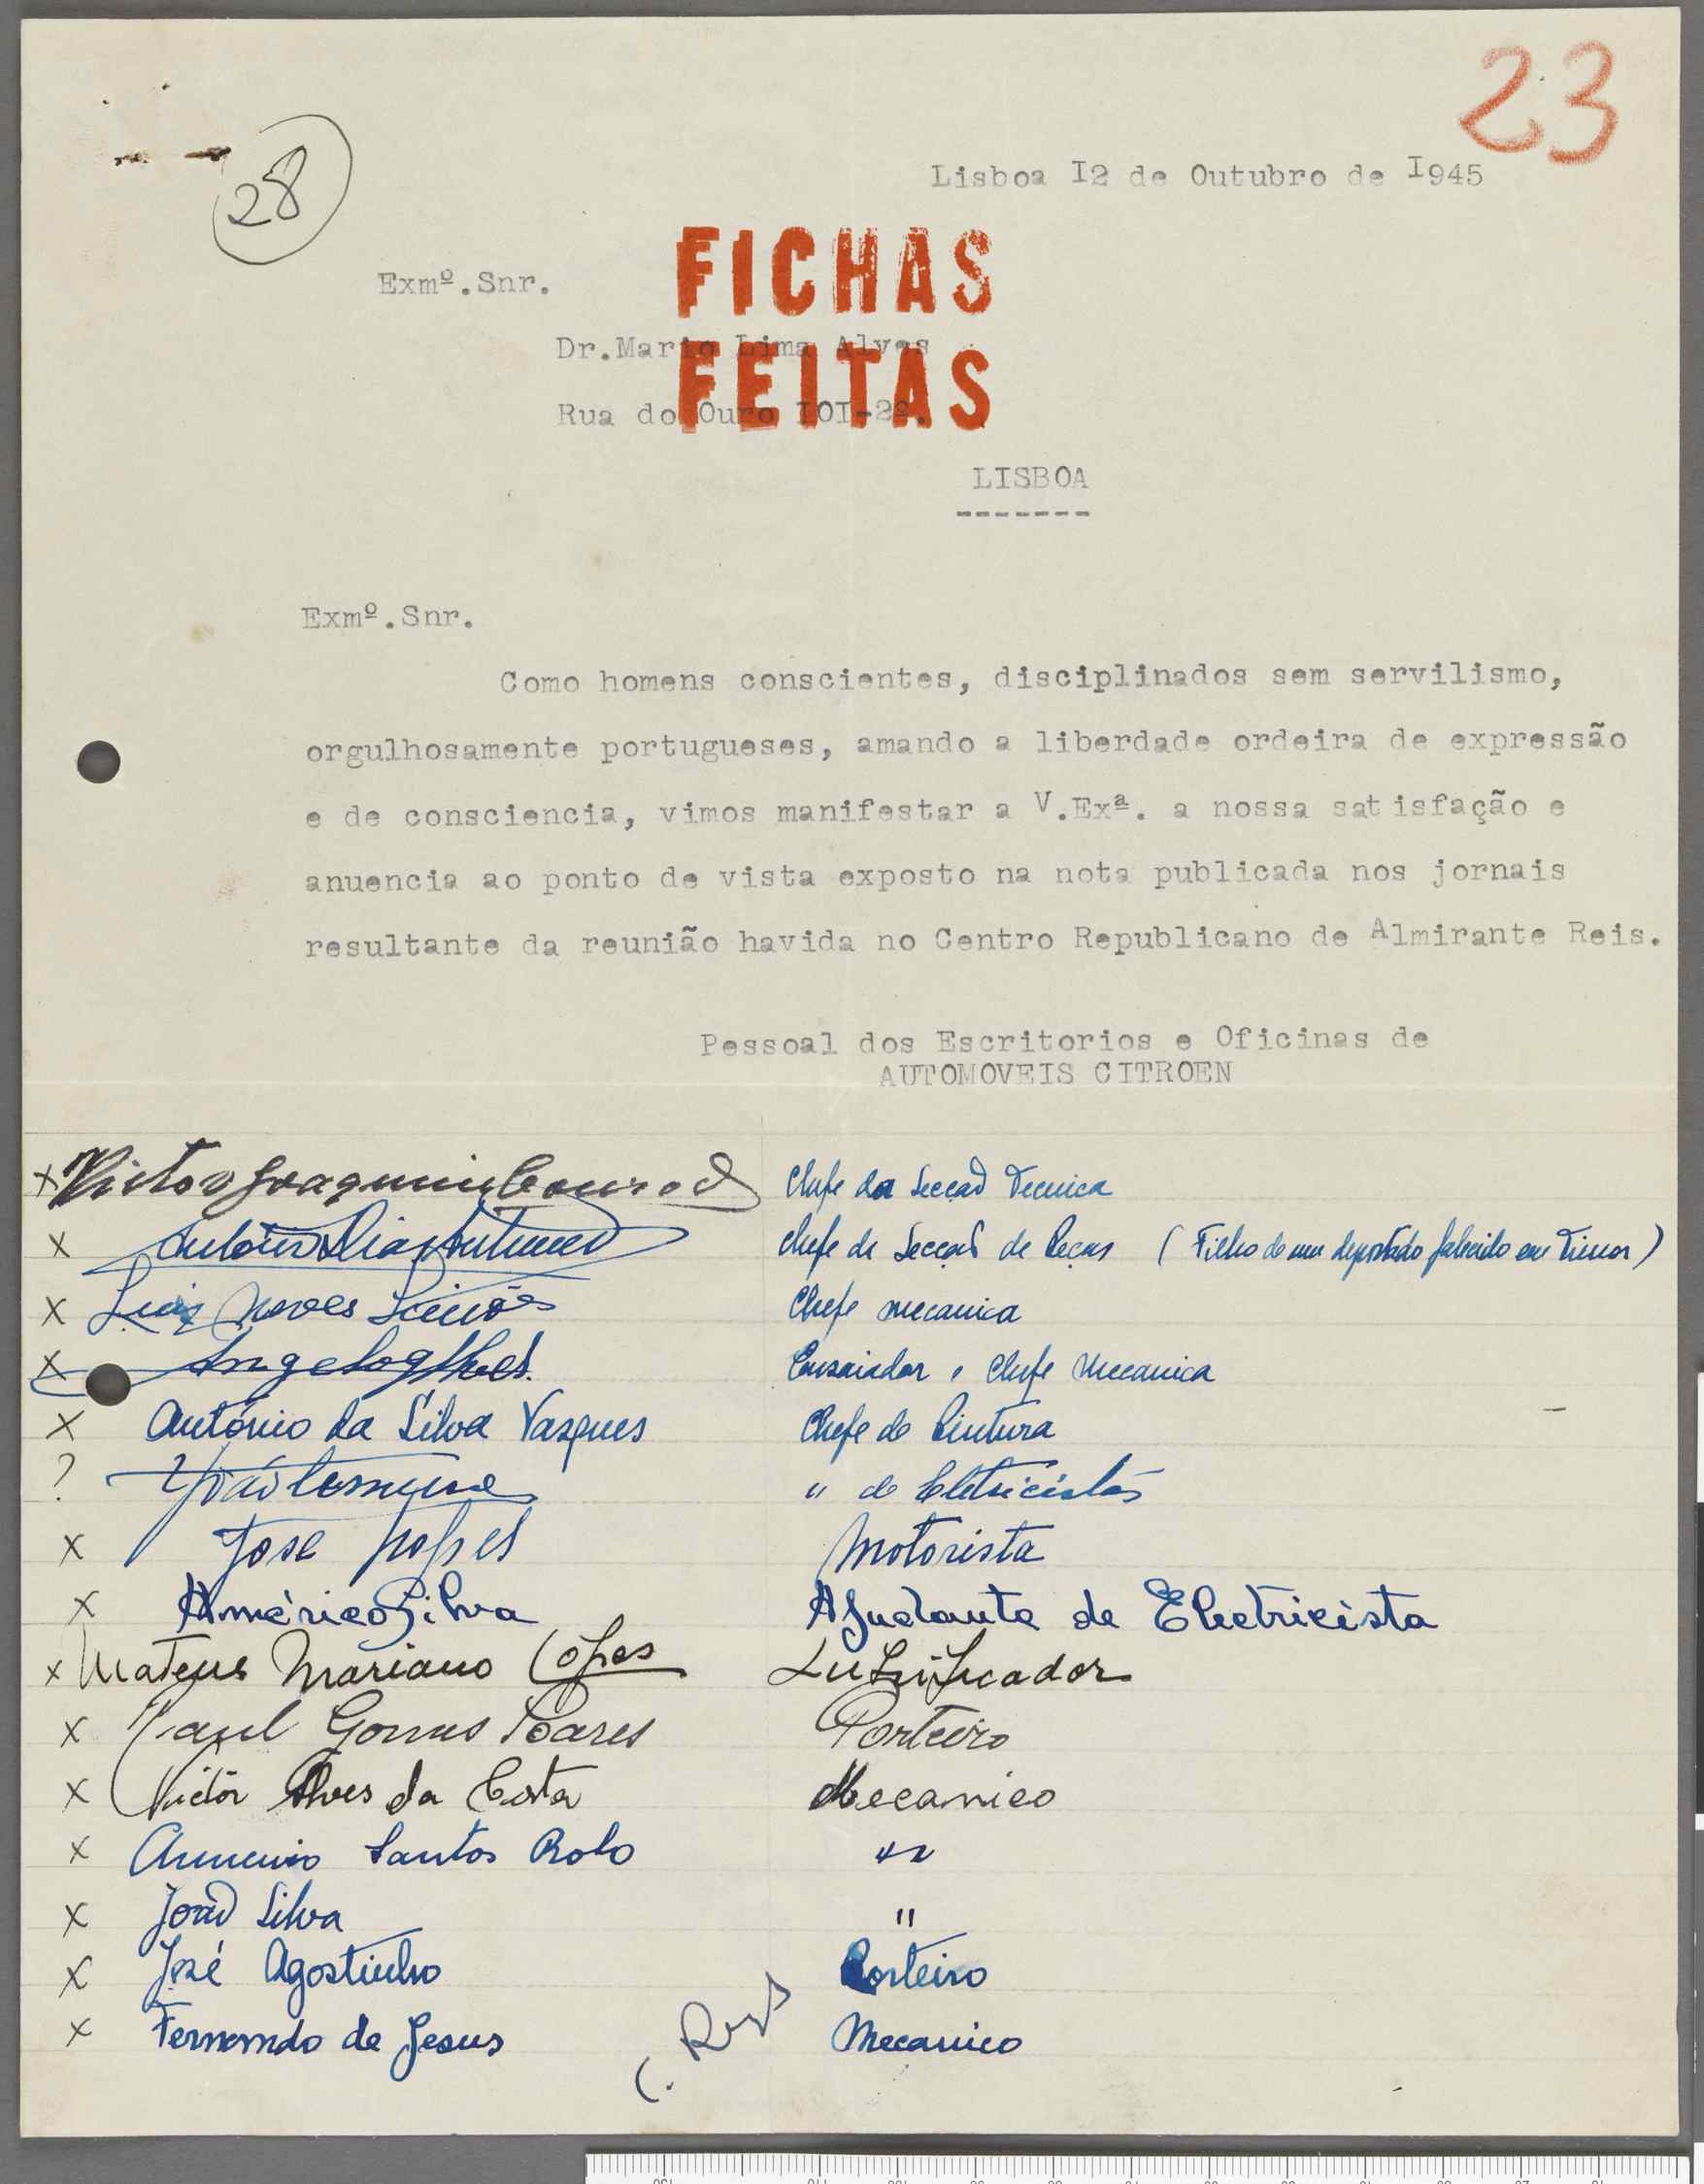 23
28
Lisboa I2 de Outubro de I945
FICHAS
FEITAS
Exmº.Snr.
Dr.Mario Lima Alves
Rua do Ouro IOI-2º.
LISBOA
-------
Exmº.Snr.
Como homens conscientes, disciplinados sem servilismo,
orgulhosamente portugueses, amando a liberdade ordeira de expressão
e de consciencia, vimos manifestar a V.Exª. a nossa satisfação e
anuencia ao ponto de vista exposto na nota publicada nos jornais
resultante da reunião havida no Centro Republicano de Almirante Reis.
Pessoal dos Escritorios e Oficinas de
AUTOMOVEIS CITROEN
x Victor Joaquim Chefe da Secção Tecnica
x António Dias Antunes Chefe de Secção de Peças (Filho de um deportado falecido em Timor)
x Luiz Neves Simões Chefe mecanica
x Angelo Ensaiador e Chefe Mecanica
x António da Silva Vasques Chefe de Pintura
? " de Eletricistas
x Jose Lopes Motorista
x Américo Silva Ajudante de Electricista
x Mateus Mariano Lopes Lubrificador
x Raul Gomes Soares Porteiro
x Victór Alves da Costa Mecanico
x Armenio Santos Rolo "
x João Silva "
x José Agostinho Porteiro
x Fernando de Jesus Mecanico